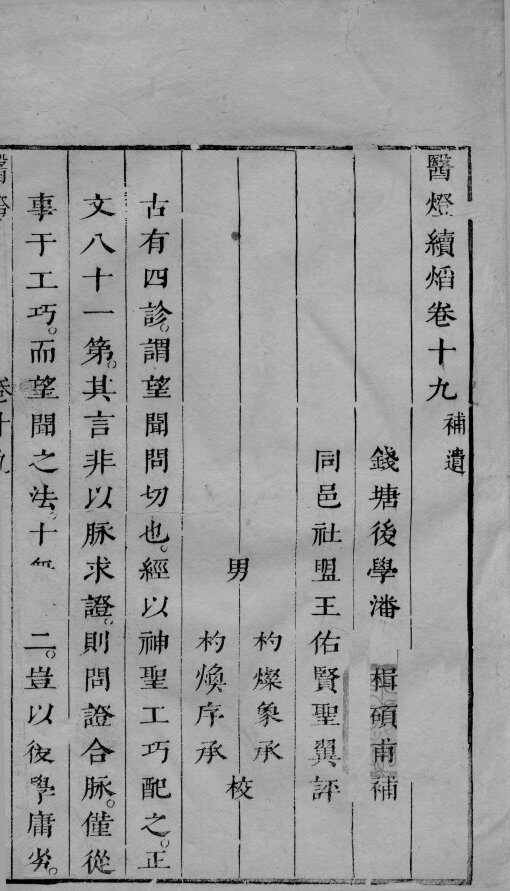 醫燈續焰卷十九 補遺
錢塘後學潘 楫碩甫補
同邑社盟王佑賢聖翼評
杓燦象承
男 校
杓煥序承
古有四診。謂望聞問切也。經以神聖工巧配之。正
文八十一第。其言非以脉求證。則問證合脉。僅從
事于工巧。而望聞之法。十無 二。豈以後學庸劣。
卷十九